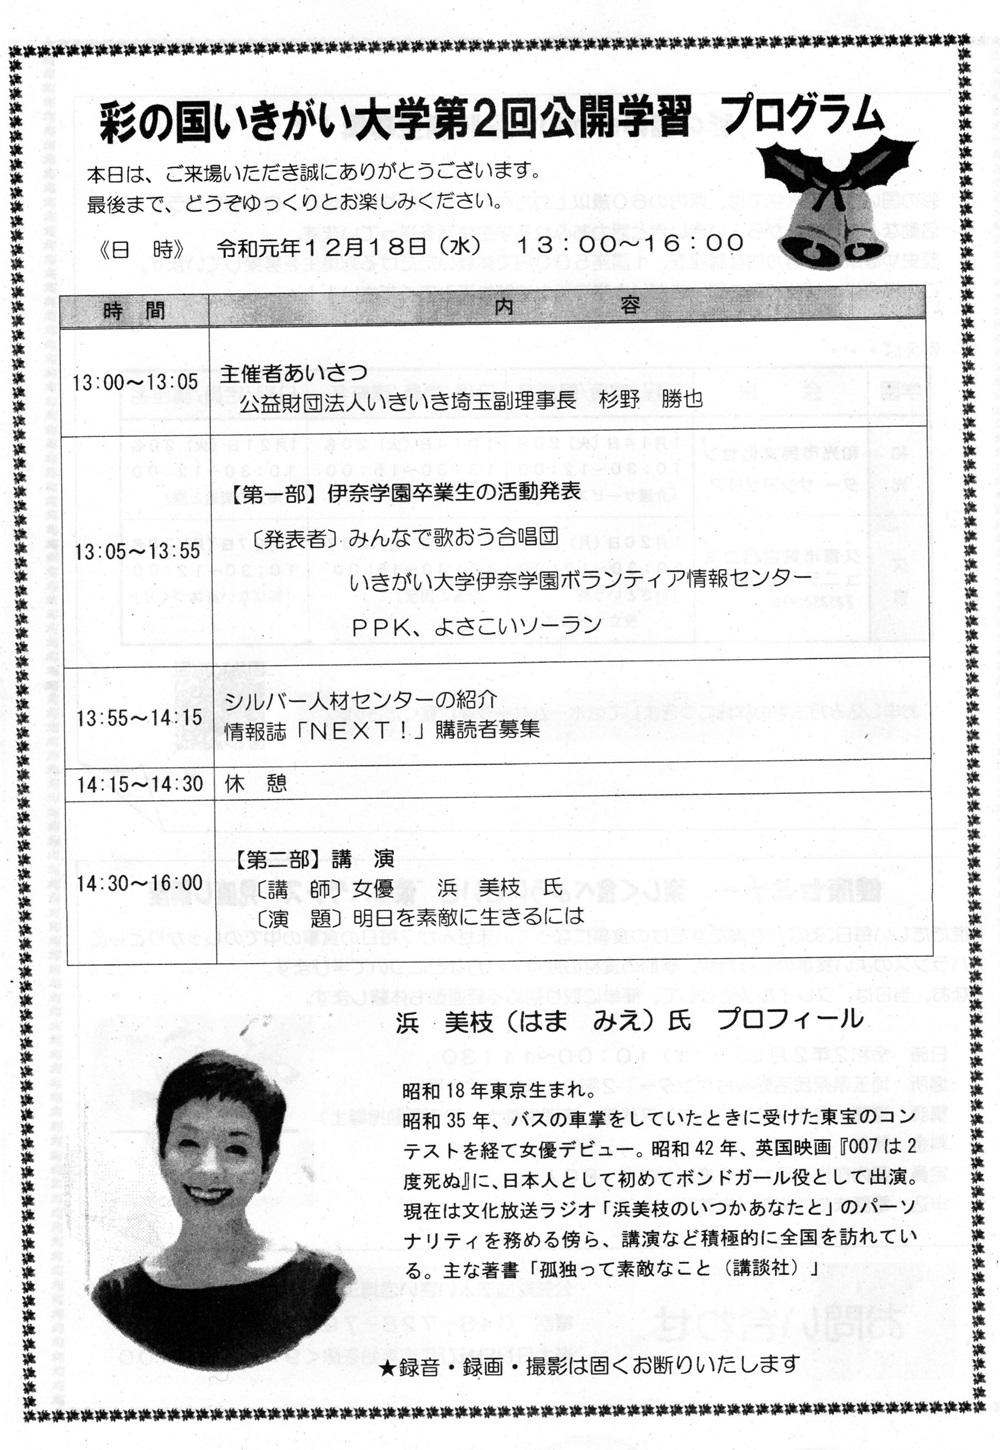 彩の国いきがい大学第2回公開学習　プログラム
本日は、ご来場いただき誠にありがとうございます。
最後まで、どうぞゆっくりとお楽しみください。
《日　時》　令和元年12月18日（水）　13：00～16：00
時　間　内　容
13:00～13:05　主催者あいさつ
公益財団法人いきいき埼玉副理事長　杉野　勝也
【第一部】伊奈学園卒業生の活動発表
13:05～13:55　〔発表者〕みんなで歌おう合唱団
いきがい大学伊奈学園ボランティア情報センター
ＰＰＫ、よさこいソーラン
13:55～14:15　シルバー人材センターの紹介
情報誌「ＮＥＸＴ！」購読者募集
14:15～14:30　休　憩
14:30～16:00　【第二部】講　演
〔講　師〕女優　　浜　美枝　氏
〔演　題〕明日を素敵に生きるには
浜　美枝（はま　みえ）氏　プロフィール
昭和18年東京生まれ。
昭和35年、バスの車掌をしていたときに受けた東宝のコン
テストを経て女優デビュー。昭和42年、英国映画『007は2
度死ぬ』に、日本人として初めてボンドガール役として出演。
現在は文化放送ラジオ「浜美枝のいつかあなたと」のパーソ
ナリティを務める傍ら、講演など積極的に全国を訪れてい
る。主な著書「孤独って素敵なこと（講談社）」
★録音・録画・撮影は固くお断りいたします